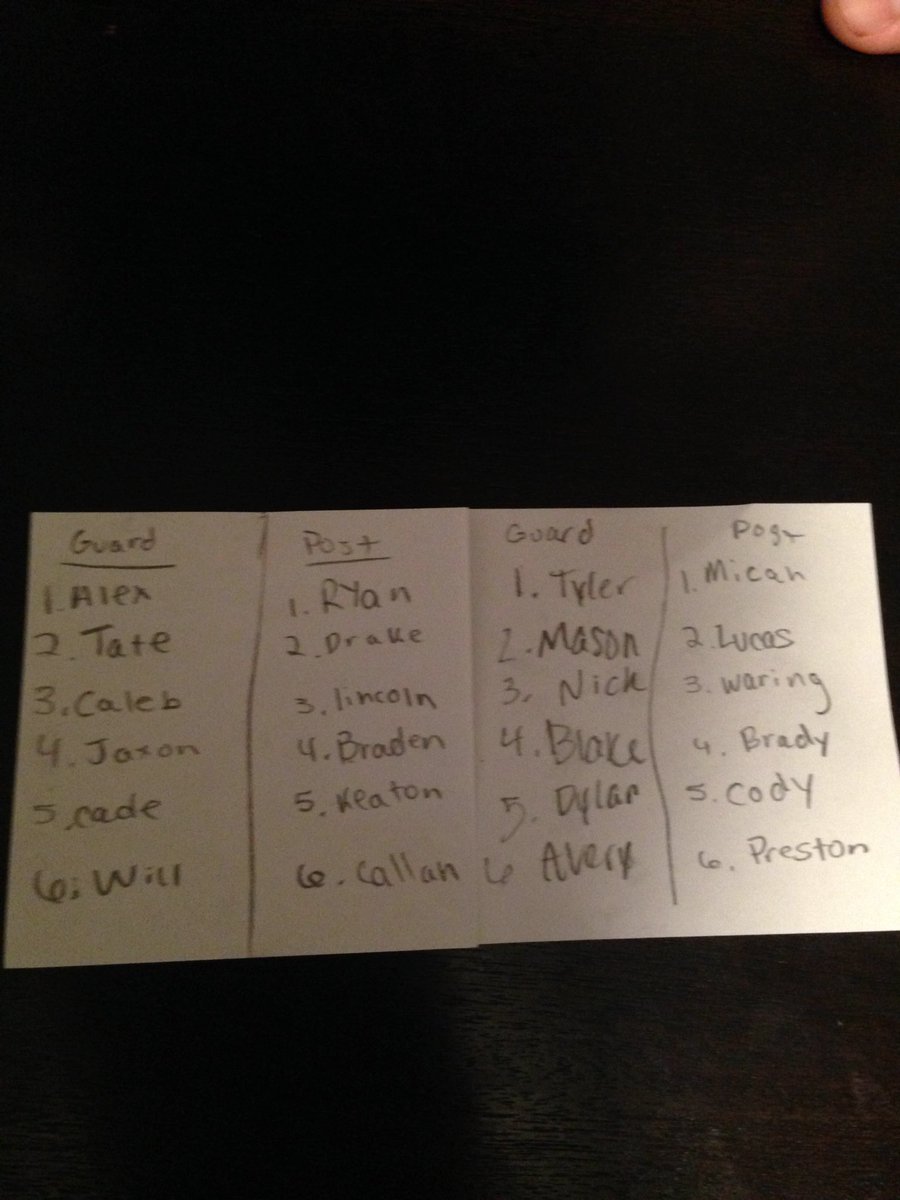 Guard
1. Alex
2. Tate
3. Caleb
4. Jaxon
5. cade
6. Will
Post
1. RYan
2. Drake
3. lincoln
4. Braden
5. Keaton
6. Callan
Guard
1. Tyler
2. Mason
3. Nick
4. Blake
5. Dylan
6 Avery
Post
1. Micah
2. Lucas
3. waring
4. Brady
5. Cody
6. Preston